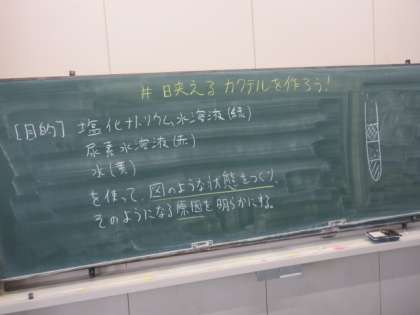 # 映えるカクテルを作ろう!
[目的] 塩化ナトリウム水溶液(緑)
尿素水溶液(赤)
水(黄)
を作って、図のような状態をつくり
そのようになる原因を明らかにする。